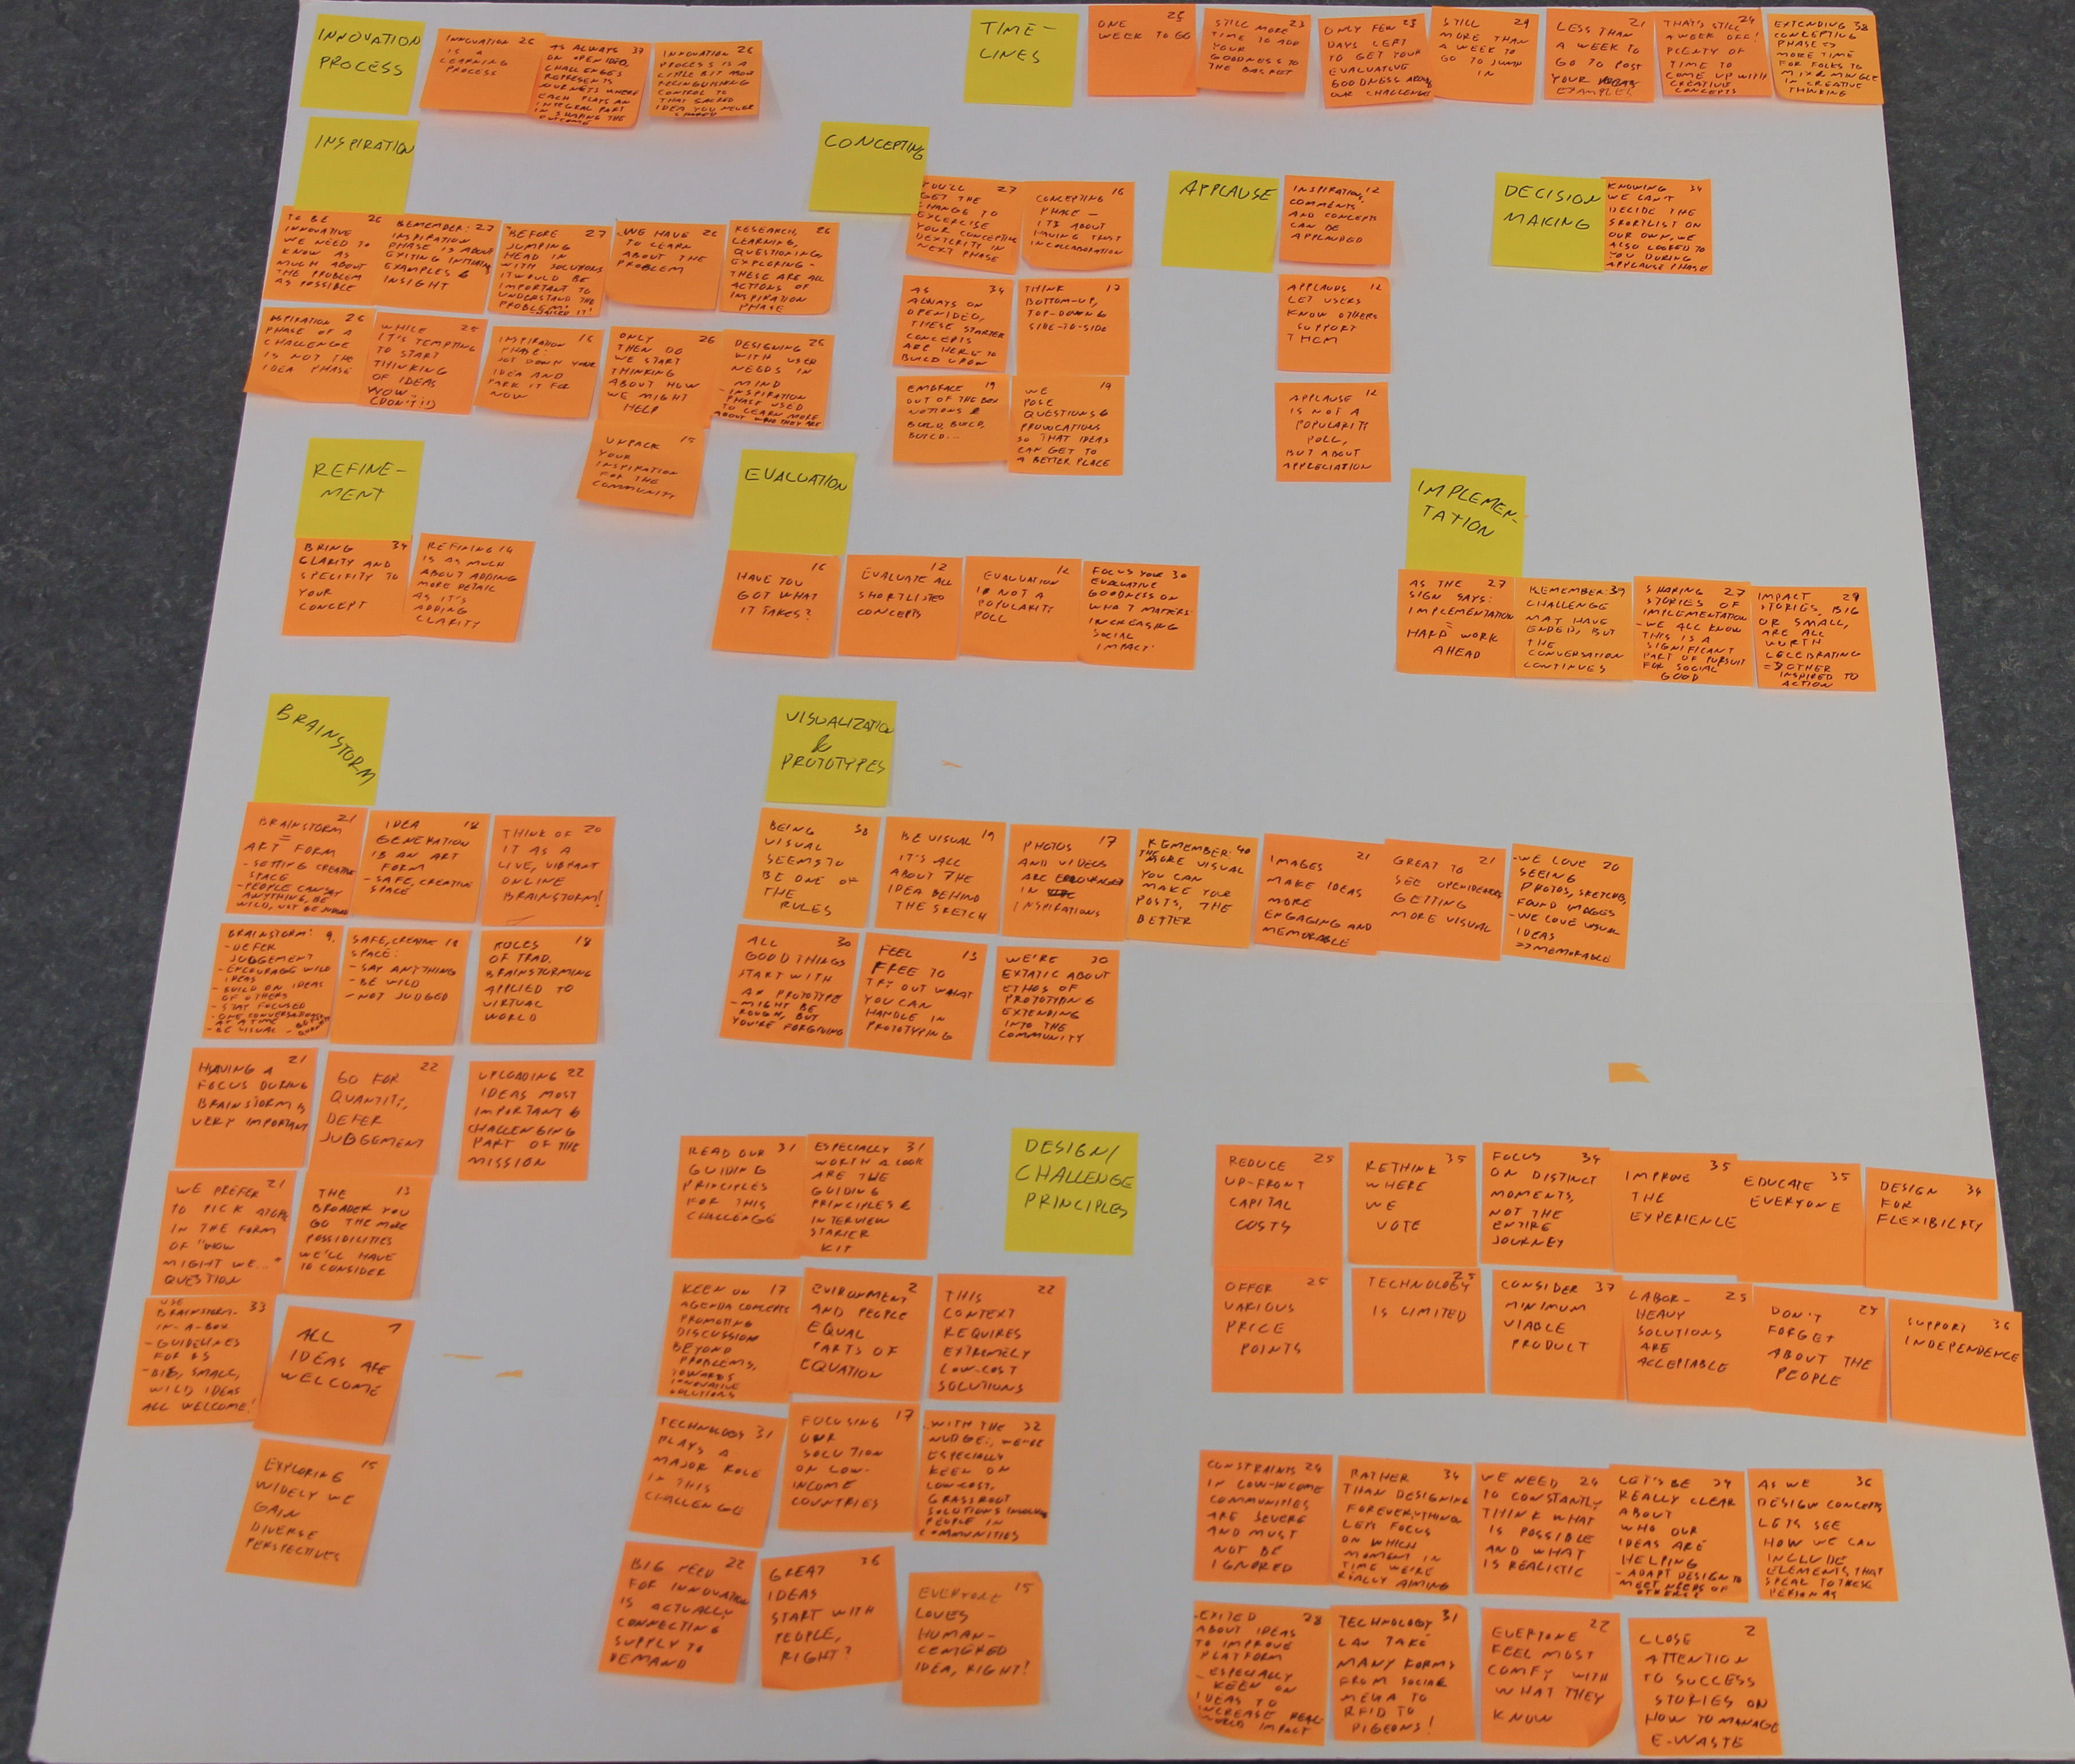 INNOVATION
PROCESS
INNOVATION 26
IS A
LEARNING
PROCESS
AS ALWAYS 37
ON OPENIDEO,
CHALLENGES
REPRESENTS
JOURNEYS WHERE
EACH PLAYS AN
INTEGRAL PART
IN SHAPING THE
OUTCOME
INNOVATION 26
PROCESS IS A
LITTLE BIT ABOUT
RELINQUISHING
CONTROL TO
THAT SACRED
IDEA YOU NEVER
SHARED
TIME-
LINES
ONE 25
WEEK TO GO
STILL MORE 23
TIME TO ADD
YOUR
GOODNESS TO
THE BASKET
ONLY FEW 23
DAYS LEFT
TO GET YOUR
EVALUATIVE
GOODNESS
OUR CHALLENGE
STILL 29
MORE THAN
A WEEK TO
GO TO JUMP
IN
LESS THAN 21
A WEEK TO
GO TO POST
YOUR
EXAMPLES
THAT'S STILL 24
A WEEK OFF!
PLENTY OF
TIME TO
COME UP WITH
CREATIVE
CONCEPTS
EXTENDING 38
CONCEPTING
PHASE =>
MORE TIME
FOR FOLKS TO
MIX & MINGLE
IN CREATIVE
THINKING
INSPIRATION
TO BE 26
INNOVATIVE
WE NEED TO
KNOW AS
MUCH ABOUT
THE PROBLEM
AS POSSIBLE
REMEMBER: 27
INSPIRATION
PHASE IS ABOUT
EXITING INITIATING
EXAMPLES &
INSIGHT
BEFORE 27
JUMPING
HEAD IN
WITH SOLUTIONS
IT WOULD BE
IMPORTANT TO
UNDERSTAND THE
PROBLEM.
NAILED IT!
WE HAVE 26
TO LEARN
ABOUT THE
PROBLEM
RESEARCH, 26
LEARNING,
QUESTIONING,
EXPLORING -
THESE ARE ALL
ACTIONS OF
INSPIRATION
PHASE
INSPIRATION 26
PHASE OF A
CHALLENGE
IS NOT THE
IDEA PHASE
WHILE 25
IT'S TEMPTING
TO START
THINKING
OF IDEAS
NOW...
(DON'T!)
INSPIRATION 16
PHASE:
JOT DOWN YOUR
IDEA AND
PARK IT FOR
NOW
ONLY 26
THEN DO
WE START
THINKING
ABOUT HOW
WE MIGHT
HELP
DESIGNING 26
WITH USER
NEEDS IN
MIND
- INSPIRATION
PHASE USED
TO LEARN MORE
ABOUT WHO THEY ARE
UNPACK 15
YOUR
INSPIRATION
FOR THE
COMMUNITY
CONCEPTING
YOU'LL 27
GET THE
CHANGE TO
EXCERCISE
YOUR CONCEPTING
DEXTERITY IN
NEXT PHASE
CONCEPTING 16
PHASE -
ITS ABOUT
HAVING TRUST
IN COLLABORATION
AS 34
ALWAYS ON
OPENIDEO,
THESE STARTER
CONCEPTS
ARE HERE TO
BUILD UPON
THINK 17
BOTTOM-UP,
TOP-DOWN &
SIDE-TO-SIDE
EMBRACE 19
OUT OF THE BOX
NOTIONS &
BUILD, BUILD,
BUILD...
WE 19
POSE
QUESTIONS &
PROVOCATIONS
SO THAT IDEAS
CAN GET TO
A BETTER PLACE
APPLAUSE
INSPIRATIONS, 12
COMMENTS
AND CONCEPTS
CAN BE
APPLAUDED
APPLAUDS 12
LET USERS
KNOW OTHERS
SUPPORT
THEM
APPLAUSE 12
IS NOT A
POPULARITY
POLL,
BUT ABOUT
APPRECIATION
DECISION
MAKING
KNOWING 34
WE CAN'T
DECIDE THE
SHORTLIST ON
OUR OWN, WE
ALSO LOOKED TO
YOU DURING
APPLAUSE PHASE
REFINE-
MENT
BRING 34
CLARITY AND
SPECIFITY TO
YOUR
CONCEPT
REFINING 14
IS AS MUCH
ABOUT ADDING
MORE DETAIL
AS IT'S
ADDING
CLARITY
EVALUATION
16
HAVE YOU
GOT WHAT
IT TAKES?
12
EVALUATE ALL
SHORTLISTED
CONCEPTS
12
EVALUATION
IS NOT A
POPULARITY
POLL
FOCUS YOUR 30
EVALUATIVE
GOODNESS ON
WHAT MATTERS:
INCREASING
SOCIAL
IMPACT
IMPLEMEN-
TATION
AS THE 27
SIGN SAYS:
IMPLEMENTATION
=
HARD WORK
AHEAD
REMEMBER: 39
CHALLENGE
MAY HAVE
ENDED, BUT
THE
CONVERSATION
CONTINUES
SHARING 27
STORIES OF
IMPLEMENTATION
- WE ALL KNOW
THIS IS A
SIGNIFICANT
PART OF PURSUIT
FOR SOCIAL
GOOD
IMPACT 29
STORIES, BIG
OR SMALL,
ARE ALL
WORTH
CELEBRATING
=> OTHER
INSPIRED TO
ACTION
BRAINSTORM
BRAINSTORM 21
=
ART FORM
- SETTING CREATIVE
SPACE
- PEOPLE CAN SAY
ANYTHING, BE
WILD, NOT BE JUDGED
IDEA 18
GENERATION
IS AN ART
FORM
- SAFE, CREATIVE
SPACE
THINK OF 20
IT AS A
LIVE, VIBRANT
ONLINE
BRAINSTORM!
BRAINSTORM: 9
- DEFER
JUDGEMENT
- ENCOURAGE WILD
IDEAS
- BUILD ON IDEAS
OF OTHERS
- STAY FOCUSED
- ONE CONVERSATION
AT A TIME
- BE VISUAL
SAFE, CREATIVE 18
SPACE:
- SAY ANYTHING
- BE WILD
- NOT JUDGED
RULES 18
OF TRAD.
BRAINSTORMING
APPLIED TO
VIRTUAL
WORLD
HAVING A 21
FOCUS DURING
BRAINSTORM IS
VERY IMPORTANT
22
GO FOR
QUANTITY,
DEFER
JUDGEMENT
UPLOADING 22
IDEAS MOST
IMPORTANT &
CHALLENGING
PART OF THE
MISSION
WE PREFER 21
TO PICK
IN THE FORM
OF "HOW
MIGHT WE..."
QUESTION
THE 13
BROADER YOU
GO THE MORE
POSSIBILITIES
WE'LL HAVE
TO CONSIDER
USE 33
BRAINSTORM-
IN-A-BOX
- GUIDELINES
FOR BS
- BIG, SMALL,
WILD IDEAS
ALL WELCOME!
7
ALL
IDEAS ARE
WELCOME
15
EXPLORING
WIDELY WE
GAIN
DIVERSE
PERSPECTIVES
VISUALIZATION
&
PROTOTYPES
BEING 38
VISUAL
SEEMS TO
BE ONE OF
THE
RULES
BE VISUAL 19
IT'S ALL
ABOUT THE
IDEA BEHIND
THE SKETCH
PHOTOS 17
AND VIDEOS
ARE ENCOURAGED
IN
INSPIRATIONS
REMEMBER: 40
THE MORE VISUAL
YOU CAN
MAKE YOUR
POSTS, THE
BETTER
IMAGES 21
MAKE IDEAS
MORE
ENGAGING AND
MEMORABLE
GREAT TO 21
SEE OPENIDEATORS
GETTING
MORE VISUAL
- WE LOVE 20
SEEING
PHOTOS, SKETCHES,
FOUND IMAGES
- WE LOVE VISUAL
IDEAS
=> MEMORABLE
ALL 30
GOOD THINGS
START WITH
A PROTOTYPE
- MIGHT BE
ROUGH, BUT
YOU'RE FORGIVING
FEEL 13
FREE TO
TRY OUT WHAT
YOU CAN
HANDLE IN
PROTOTYPING
WE'RE 30
EXTATIC ABOUT
ETHOS OF
PROTOTYPING
EXTENDING
INTO THE
COMMUNITY
DESIGN/
CHALLENGE
PRINCIPLES
READ OUR 31
GUIDING
PRINCIPLES
FOR THIS
CHALLENGE
ESPECIALLY 31
WORTH A LOOK
ARE THE
GUIDING
PRINCIPLES &
INTERVIEW
STARTER
KIT
KEEN ON 17
AGENDA CONCEPTS
PROMOTING
DISCUSSION
BEYOND
PROBLEMS,
TOWARDS
INNOVATIVE
SOLUTIONS
ENVIRONMENT 2
AND PEOPLE
EQUAL
PARTS OF
EQUATION
22
THIS
CONTEXT
REQUIRES
EXTREMELY
LOW-COST
SOLUTIONS
TECHNOLOGY 31
PLAYS A
MAJOR ROLE
IN THIS
CHALLENGE
FOCUSING 17
OUR
SOLUTION
ON LOW-
INCOME
COUNTRIES
WITH THE 32
NUDGE, WE'RE
ESPECIALLY
KEEN ON
LOW-COST,
GRASSROOT
SOLUTIONS INVOLVING
PEOPLE IN
COMMUNITIES
BIG NEED 22
FOR INNOVATION
IS ACTUALLY
CONNECTING
SUPPLY TO
DEMAND
GREAT 36
IDEAS
START WITH
PEOPLE,
RIGHT?
EVERYONE 15
LOVES
HUMAN-
CENTERED
IDEA, RIGHT?
REDUCE 25
UP-FRONT
CAPITAL
COSTS
RETHINK 35
WHERE
WE
VOTE
FOCUS 34
ON DISTINCT
MOMENTS,
NOT THE
ENTIRE
JOURNEY
IMPROVE 35
THE
EXPERIENCE
EDUCATE 35
EVERYONE
DESIGN 34
FOR
FLEXIBILITY
OFFER 25
VARIOUS
PRICE
POINTS
TECHNOLOGY 25
IS LIMITED
CONSIDER 37
MINIMUM
VIABLE
PRODUCT
LABOR- 25
HEAVY
SOLUTIONS
ARE
ACCEPTABLE
DON'T 25
FORGET
ABOUT THE
PEOPLE
SUPPORT 36
INDEPENDENCE
CONSTRAINTS 24
IN LOW-INCOME
COMMUNITIES
ARE SEVERE
AND MUST
NOT BE
IGNORED
RATHER 34
THAN DESIGNING
FOR EVERYTHING
LETS FOCUS
ON WHICH
MOMENT IN
TIME WE'RE
REALLY AIMING
WE NEED 24
TO CONSTANTLY
THINK WHAT
IS POSSIBLE
AND WHAT
IS REALISTIC
LET'S BE 29
REALLY CLEAR
ABOUT
WHO OUR
IDEAS ARE
HELPING
- ADAPT DESIGN TO
MEET NEEDS OF
OTHERS?
AS WE 36
DESIGN CONCEPTS
LETS SEE
HOW WE CAN
INCLUDE
ELEMENTS THAT
SPEAK TO THESE
PERSONAS
- EXITED 28
ABOUT IDEAS
TO IMPROVE
PLATFORM
- ESPECIALLY
KEEN ON
IDEAS TO
INCREASE REAL-
WORLD IMPACT
TECHNOLOGY 31
CAN TAKE
MANY FORMS
FROM SOCIAL
MEDIA TO
RFID TO
PIGEONS!
22
EVERYONE
FEEL MOST
COMFY WITH
WHAT THEY
KNOW
CLOSE 2
ATTENTION
TO SUCCESS
STORIES ON
HOW TO MANAGE
E-WASTE